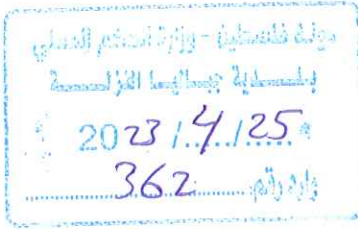 دولة فلسطين - وزارة الحكم المحلي
بلـــدية جباليا النزلـــة
2023 / 4 / 25
وارد رقم: 362